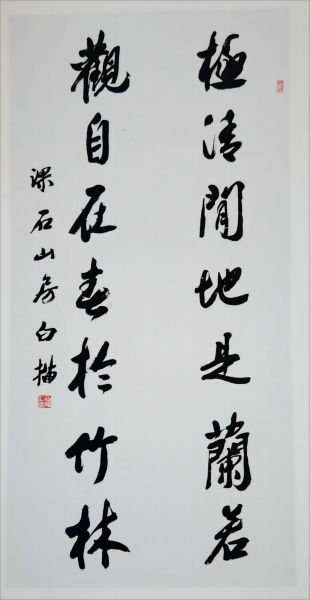 極清閒地是蘭若
觀自在春於竹林
深石山房白描